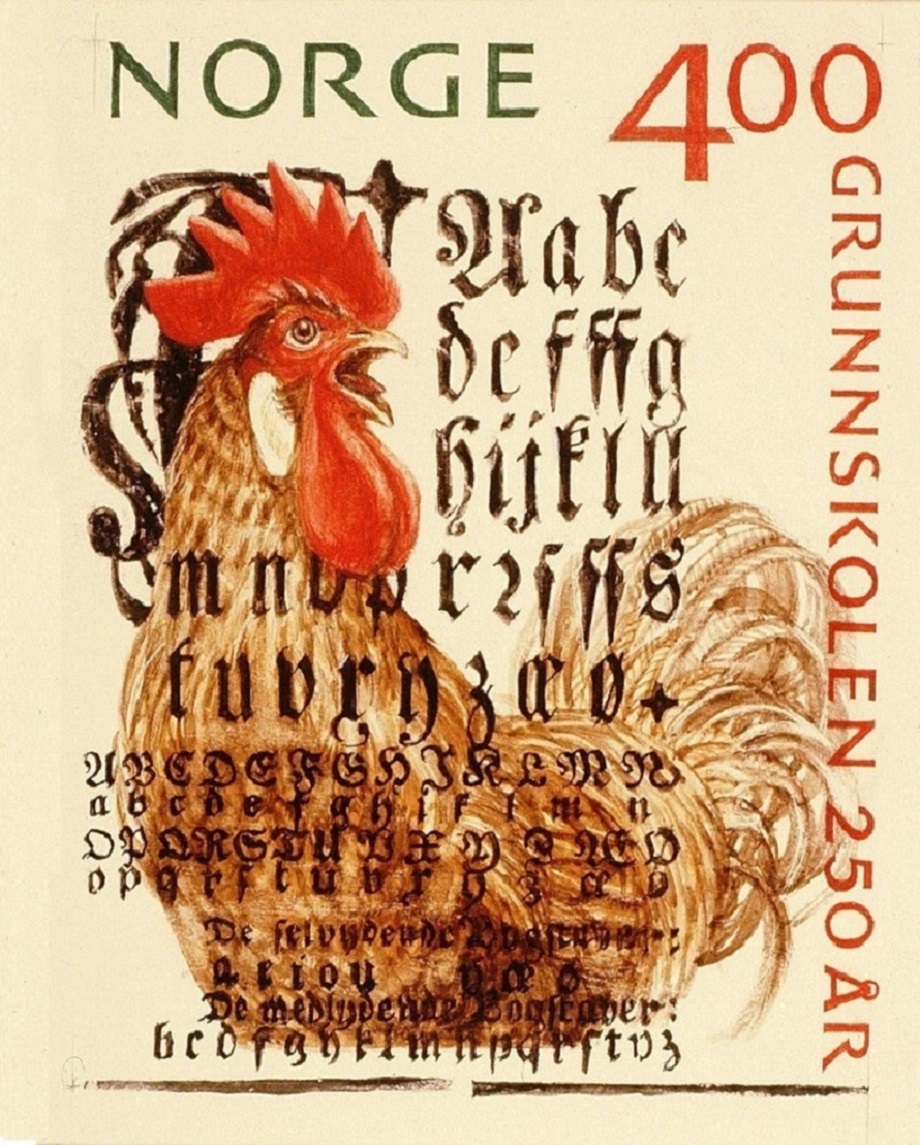 NORGE
400
GRUNNSKOLEN 250 ÅR
Aabc
defffg
hijklll
mnoprꝛſſſs
tuvxyzæø.
ABCDEFGHIKLMN
abcdefghiklmn
OPQRSTUVXYZÆØ
opqrſtuvxyzæø
De ſelvlydende Bogſtaver:
aeiou yæø
De medlydende Bogſtaver:
bcdfghklmnpqrſtvz